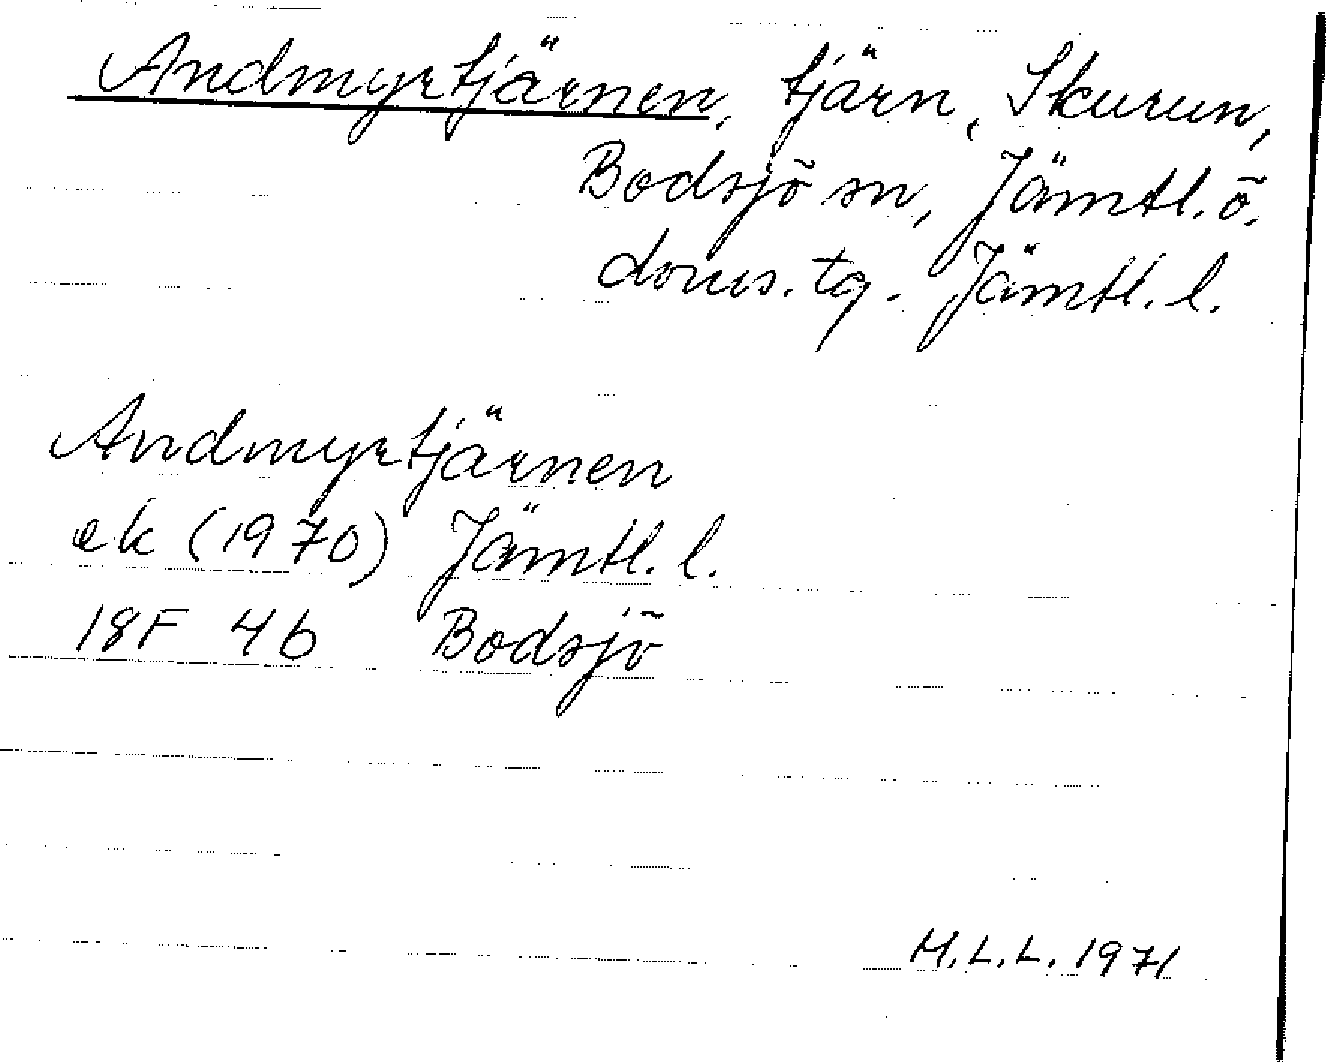 Andmyrtjärnen, tjärn, Skurun,
Bodsjö sn, Jämtl. ö.
doms. tg. Jämtl. l.
Andmyrtjärnen
ek (1970) Jämtl. l.
18F 4b Bodsjö
M.L.L. 1971